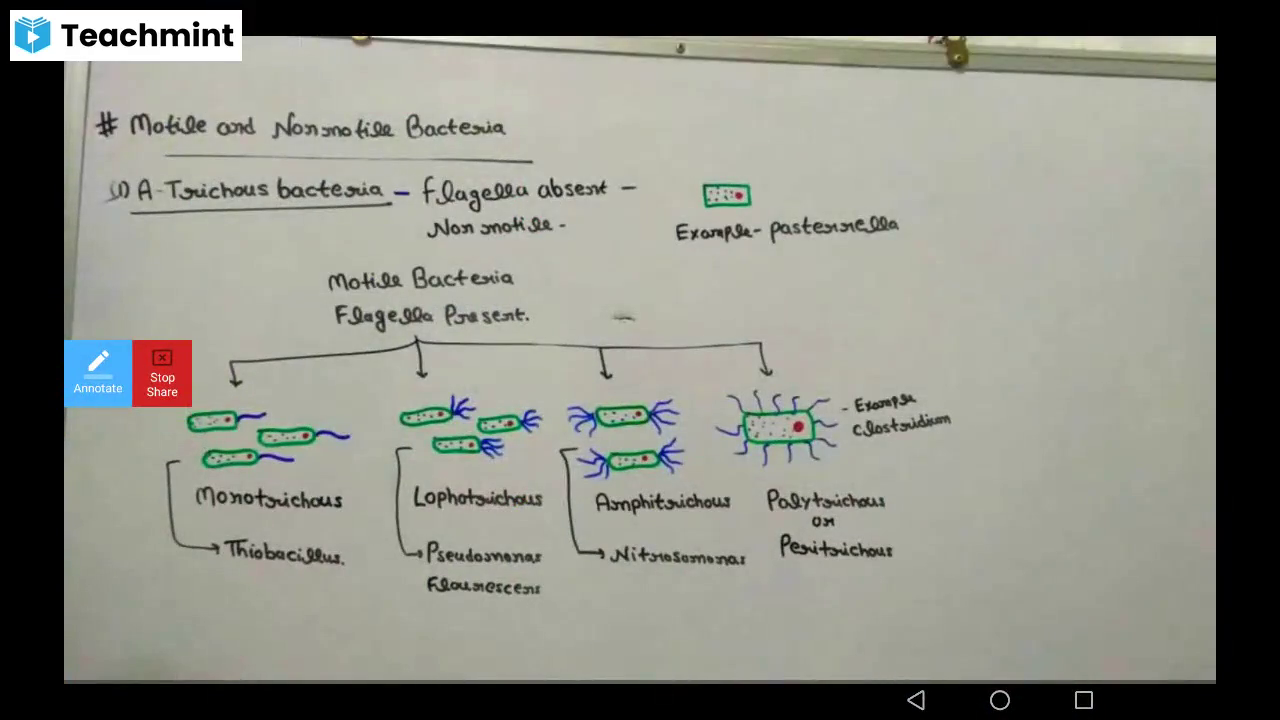 Teachmint
# Motile and Nonmotile Bacteria
(1) A-Trichous bacteria - Flagella absent -
Non motile -
Example- pasterrella
Motile Bacteria
Flagella Present.
Annotate
Stop
Share
- Example
Clostridium
Monotrichous
Lophotrichous
Amphitrichous
Polytrichous
or
Peritrichous
Thiobacillus.
Pseudomonas
Flourescens
Nitrosomonas